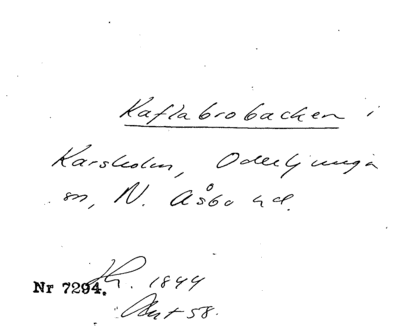 Kaflabrobacken i
Karsholm, Oderljunga
sn, N. Åsbo hd.
Nr 7294. 1844
58.